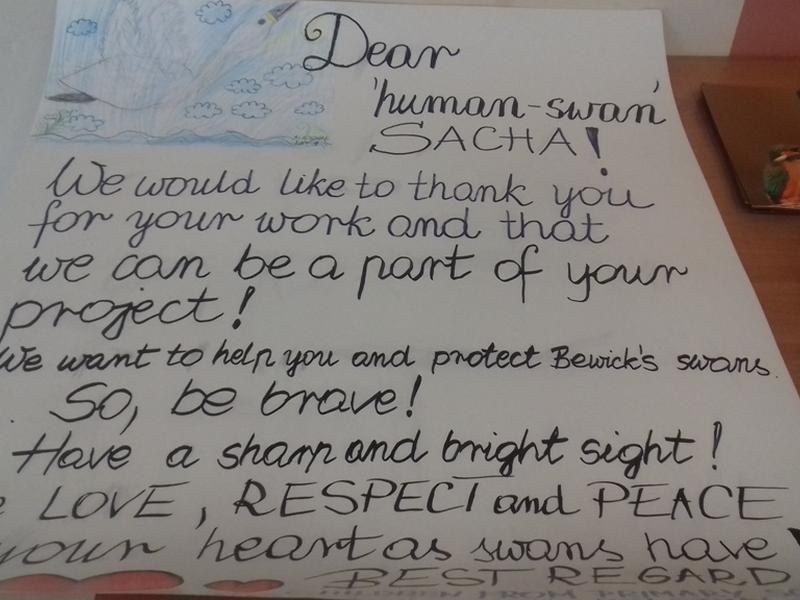 Dear
'human-swan'
SACHA!
We would like to thank you
for your work and that
we can be a part of your
project!
We want to help you and protect Bewick's swans.
So, be brave!
Have a sharp and bright sight!
LOVE, RESPECT and PEACE
your heart as swans have
BEST REGARD
CHILDREN FROM PRIMARY